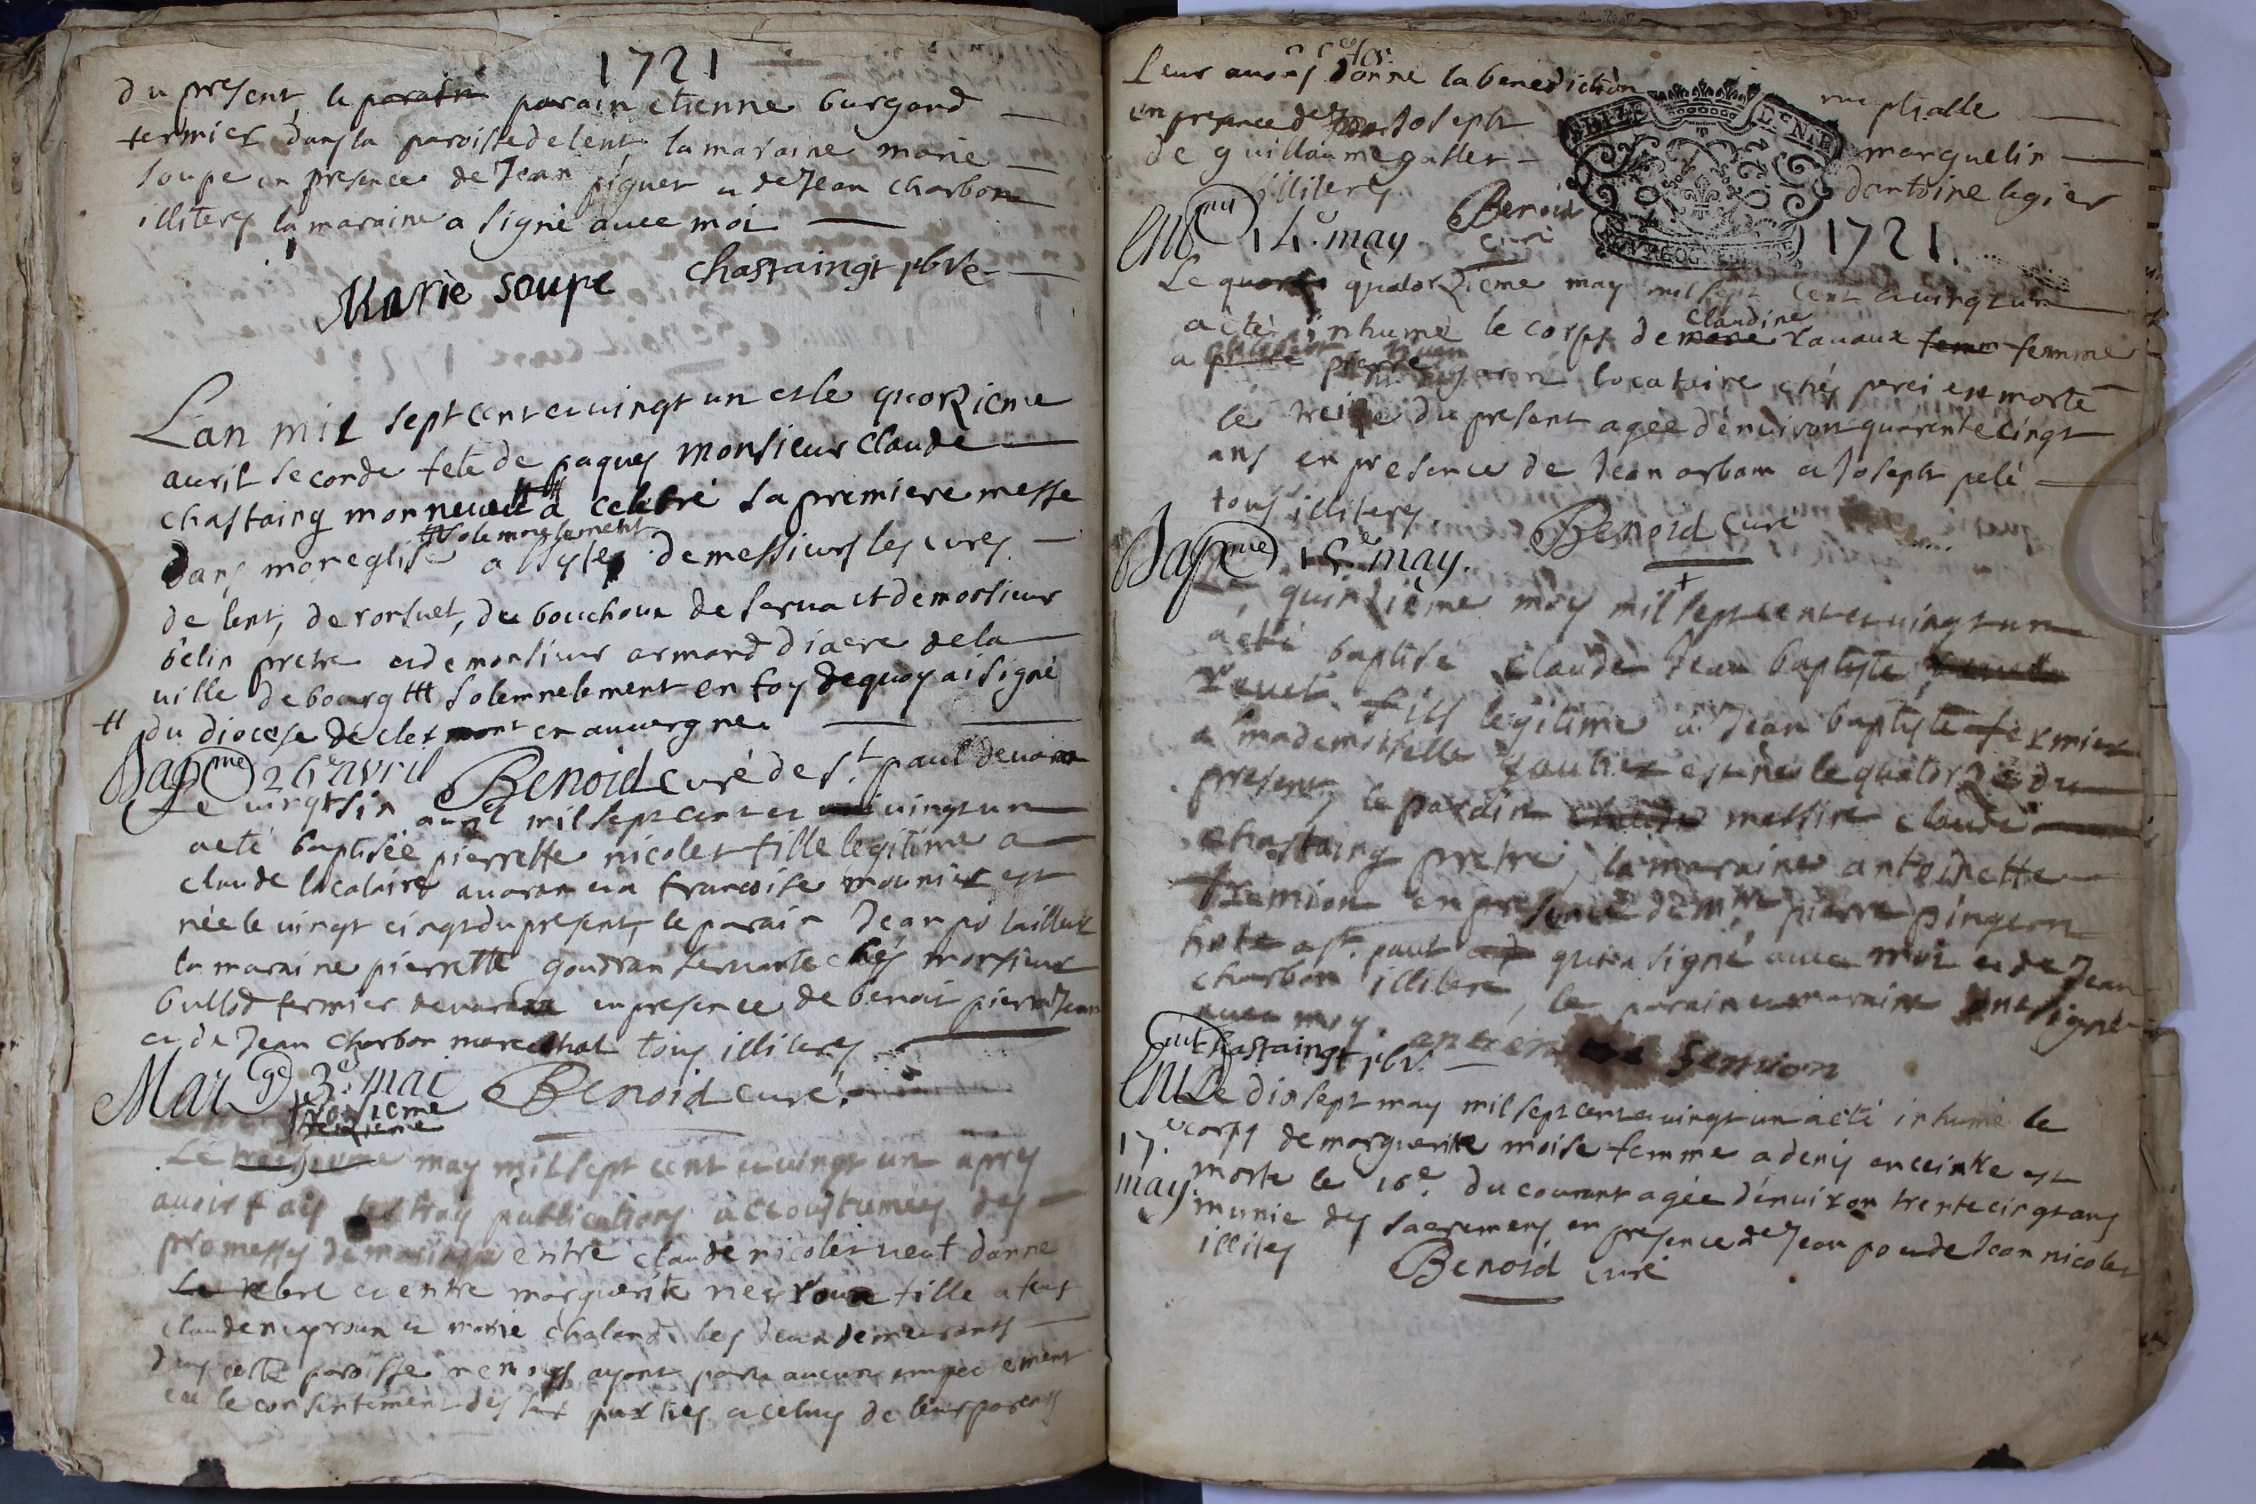 1721
du present, le parain parain etienne burgand
fermier dans la paroisse de lent la maraine marie
soupe en presence de Jean piguet et de Jean charbon
illiteres la maraine a signé avec moi
Marie soupe chastaingt pbre
Lan mil sept cent et vingt un et le quorzieme
avril seconde fete de paques monsieur claude
chastaing mon neveu # a celebré sa premiere messe
# solemnelement
dans mon eglise assisté de messieurs les cures
de lent, de ronsuet, du bouchoux de serva et de monsieur
belin pretre et de monsieur armand diacre de la
ville de bourg ## solemnelement en foy dequoy ai signé
# du diocese de clermont en auvergne.
Bapme 26e avril Benoid curé de st. paul devarax
Le vingt six avril mil sept cent et vingt un
a eté baptisée pierrette nicolet fille legitime a
claude locataire a varax et a françoise mounier est
née le vingt cinq du present, le parain Jean po tailleur
la maraine pierrette goudran servante chés monsieur
bullod fermier de varax en presence de benoit pierre Jean
et de Jean charbon marechal tous illiteres
Mariage 3e. mai Benoid curé.
troisieme
Le may mil sept cent et vingt un apres
avoir fait les trois publications accoustumées des
promesses de mariage entre claude nicolet veuf danne
Le rebre et entre marguerite neyroun fille a feus
claude neyroun et marie chaland les deux demeurants
dans cette paroisse ne nous ayant paru aucun empechement
eu le consentement des parties et celuy de leurs parents
Leur avons donné la benediction nuptialle
en presence de Joseph marguelin
de guillaume gallet dantoine legier
illiteres Benoid curé
Ent 14e. may 1721.
Le quatorzieme may mil sept cent et vingt un
a eté inhumé le corps de claudine ravaux femme
a pierre locataire chés perci est morte
le treize du present agée d'environ quarente cinq
ans en presence de Jean arban et Joseph pelé
tous illiteres. Benoid curé
Bapme 15e may.
quinzieme may mil sept cent et vingt un
a eté baptisé claude Jean baptiste
revel. fils legitime a Jean baptiste fermier
a mademoiselle gautier est né le quatorze du
present, le parain messire claude
chastaing pretre, la maraine antoinette
fremion en presence de mre pierre pingeon
hote a st. paul qui a signé avec moi et de Jean
charbon illitere, le parain et maraine ont signé
avec moy.
chastaingt pbr.
Ent Le dix sept may mil sept cent et vingt un a eté inhumé le
17e may. corps de marguerite moise femme a denis enceinte est
morte le 16e. du courant agée d'environ trente cinq ans
munie des sacremens, en presence de Jean po et de Jean nicolet
illites Benoid curé